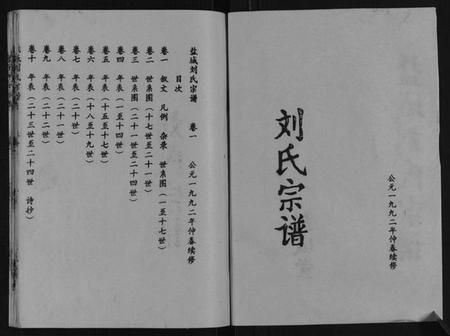 公元一九九二年仲春续修
刘氏宗谱
盐城刘氏宗谱 卷一 公元一九九二年仲春续修
目次
卷一 叙文 凡例 杂录 世系图(一至十七世)
卷二 世系图(十七世至二十一世)
卷三 世系图(二十一世至二十四世)
卷四 年表(一至十四世)
卷五 年表(十五至十七世)
卷六 年表(十八至十九世)
卷七 年表(二十世)
卷八 年表(二十一世)
卷九 年表(二十二世)
卷十 年表(二十三世至二十四世 诗抄)